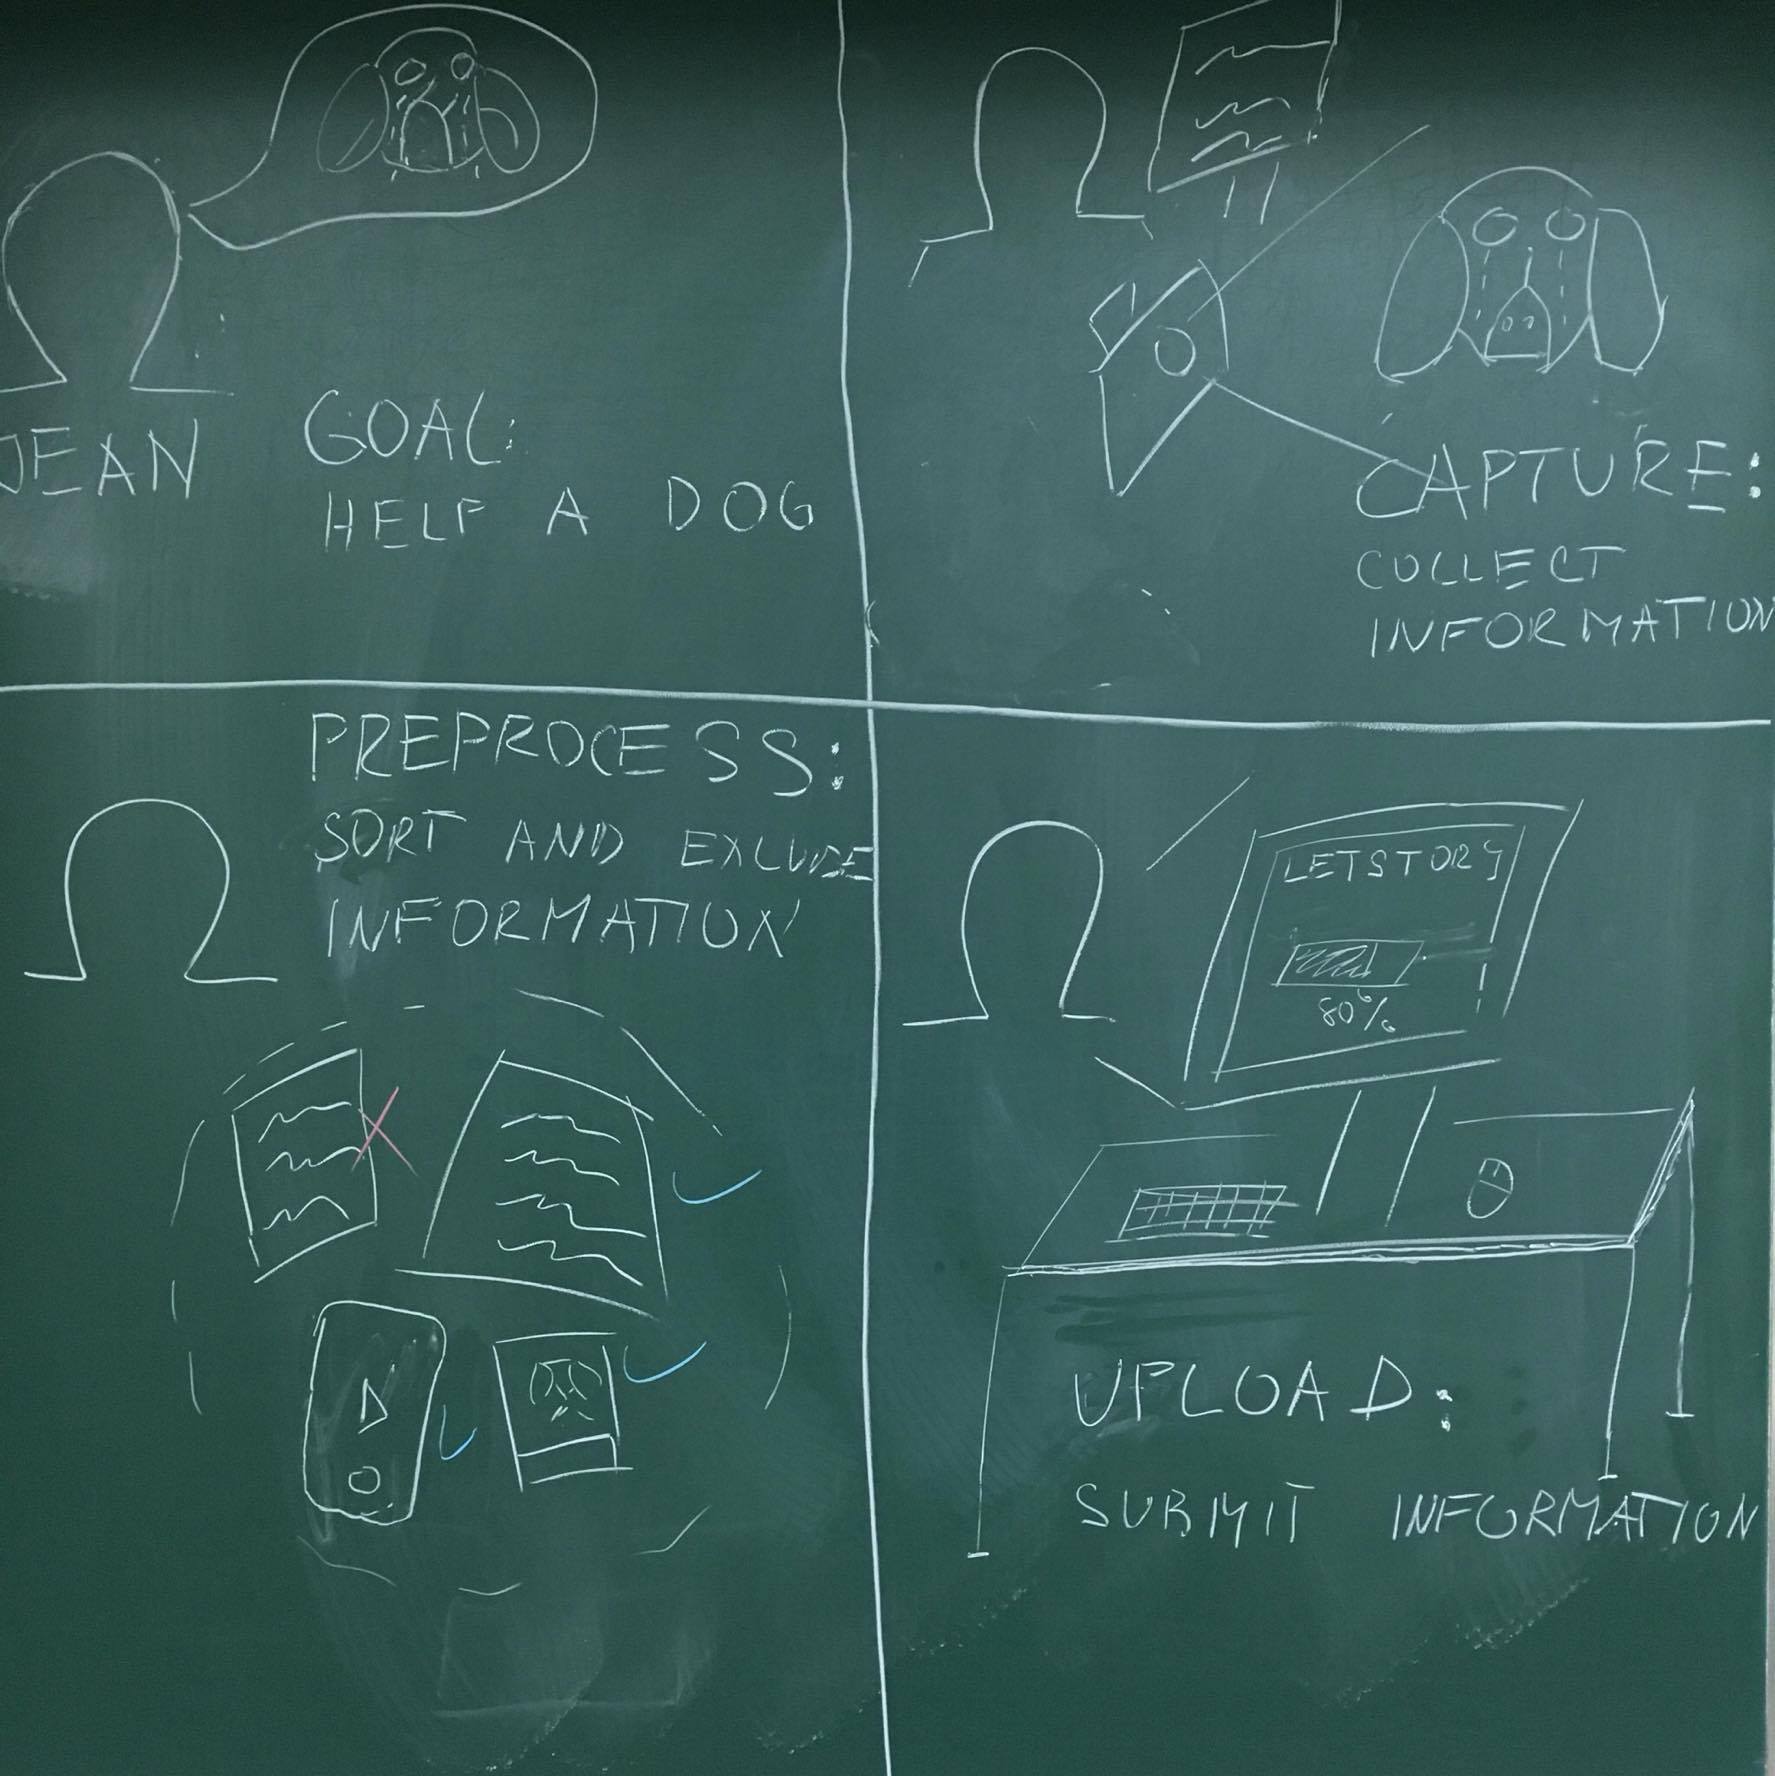 JEAN
GOAL:
HELP A DOG
CAPTURE:
COLLECT
INFORMATION
PREPROCESS:
SORT AND EXLUDE
INFORMATION
LETSTORY
80%
UPLOAD:
SUBMIT INFORMATION